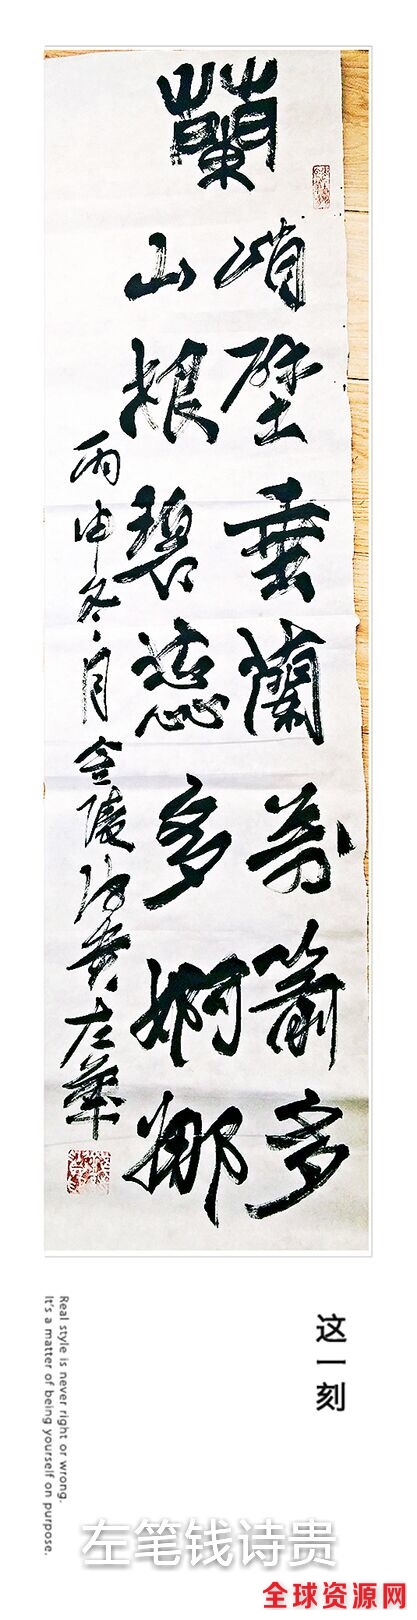 蘭
峭壁垂蘭萬箭多
山根碧蕊多婀娜
丙申冬月金陵诗贵左筆
这一刻
Real style is never right or wrong.
It's a matter of being yourself on purpose.
左笔钱诗贵
全球资源网